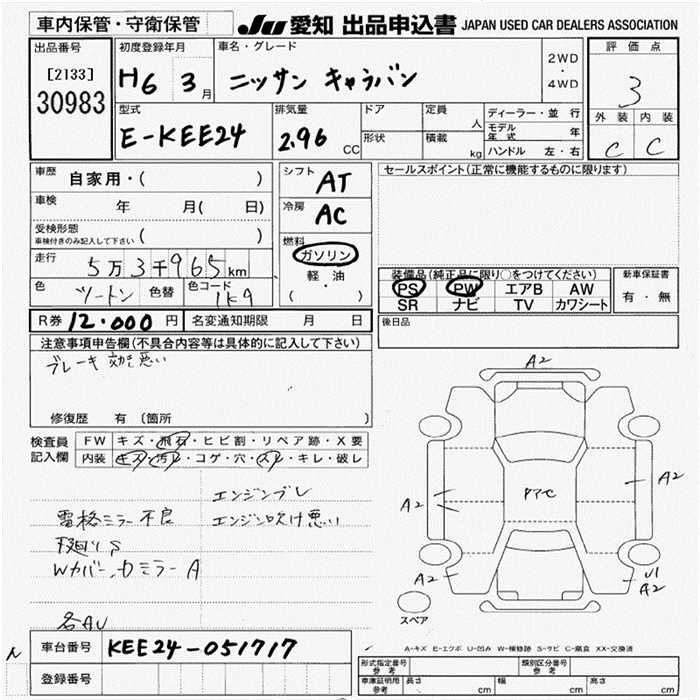 車内保管・守衛保管 JU 愛知 出品申込書 JAPAN USED CAR DEALERS ASSOCIATION
出品番号 初度登録年月 車名・グレード 2WD・4WD 評価点
[2133] H6 3月 ニッサン キャラバン 3
30983
型式 排気量 ドア 定員 人 ディーラー・並行 外装 内装
E-KEE24 2.96 CC 形状 積載 kg モデル年式 年 C C
ハンドル 左・右
車歴 自家用・( ) シフト AT セールスポイント(正常に機能するものに限ります)
車検 年 月( 日) 冷房 AC
受検形態 ( )
車検付きのみ記入して下さい
走行 5万3千965km 燃料 ガソリン
軽・油
( )
装備品(純正品に限り○をつけてください) 新車保証書
色 ツートン 色替 色コード 1K9 PS PW エアB AW 有・無
SR ナビ TV カワシート
R券 12.000円 名変通知期限 月 日 後日品
注意事項申告欄(不具合内容等は具体的に記入して下さい)
ブレーキ 効き悪い
修復歴 有 (箇所 )
検査員記入欄 FW キズ・飛石・ヒビ割・リペア跡・X要
内装 キズ・汚れ・コゲ・穴・スレ・キレ・破レ
エンジンブレ
電格ミラー不良 エンジン吹け悪い
下廻りS
Wカバー、カミラーA
各AU
A2
A2
A2
A2
U1
A2
スペア
A-キズ E-エクボ U-凹み W-補修跡 S-サビ C-腐食 XX-交換済
車台番号 KEE24-051717
登録番号
形式指定番号 参考 類別区分番号 参考
車庫証明用 参考 長さ cm 幅 cm 高さ cm